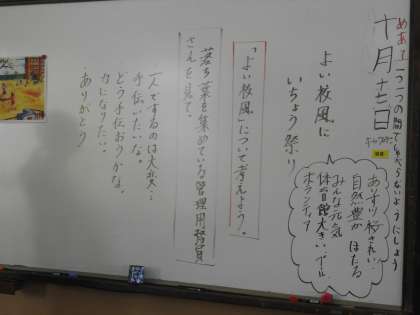 めあて 一つ一つの間でしゃべらないようにしよう
十月十三日
よい校風に
いちょう祭り
あいさつ
自然豊か ほたる
みんな元気
体育館大きい プール
ボランティア
「よい校風」について考えよう。
落ち葉を集めている管理用務員
さんを見て。
・一人でするのは大変…
手伝いたいな。
どう手伝おうかな。
力になりたい。
・ありがとう